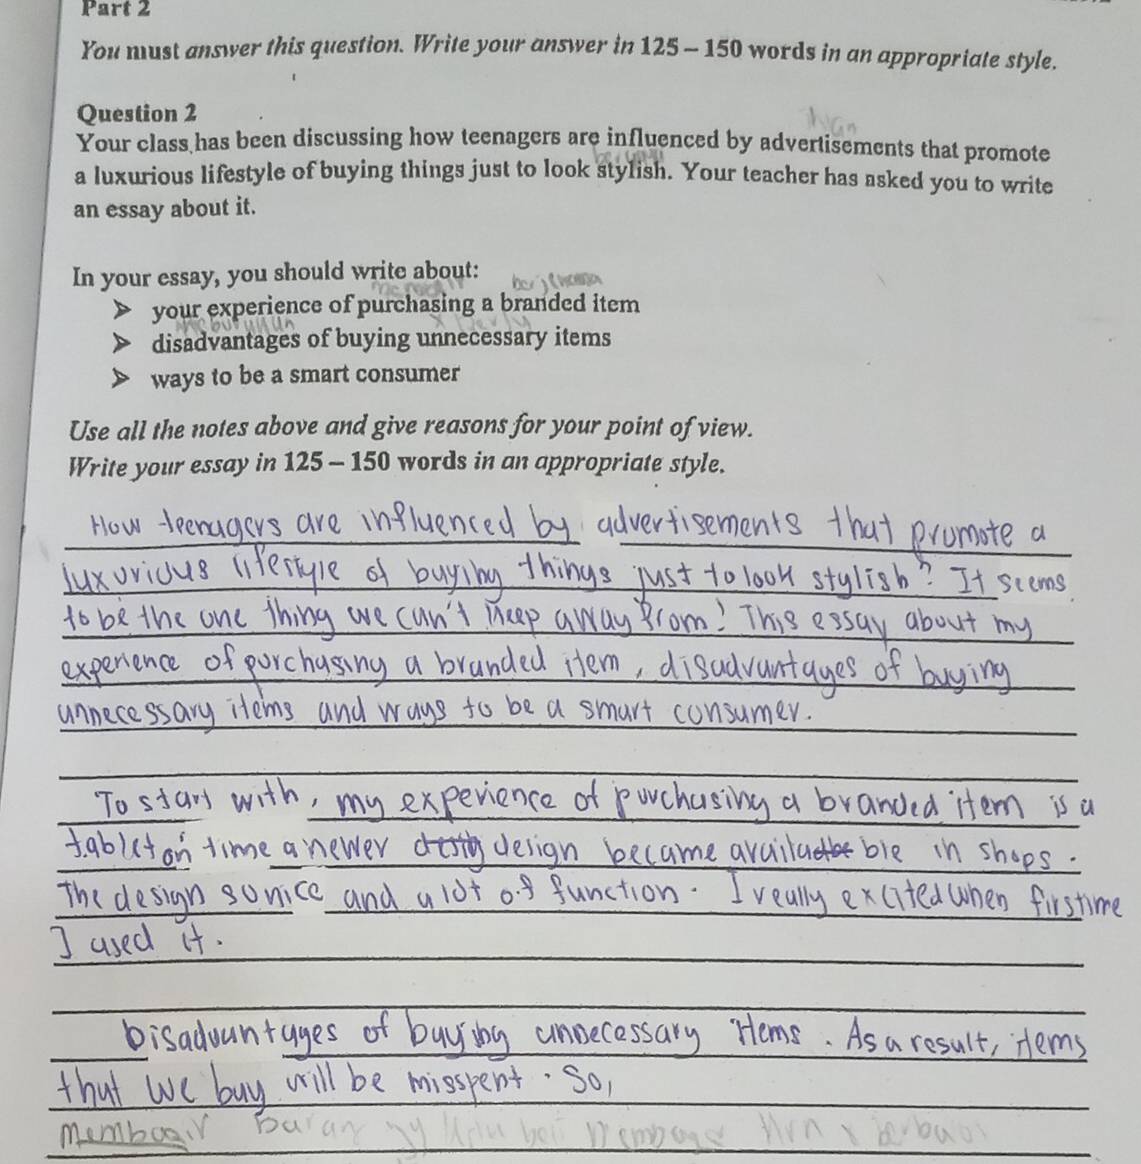 Part 2
You must answer this question. Write your answer in 125 – 150 words in an appropriate style.
Question 2
iklan
Your class has been discussing how teenagers are influenced by advertisements that promote
a luxurious lifestyle of buying things just to look stylish. Your teacher has asked you to write
an essay about it.
In your essay, you should write about:
berjenama
➤ your experience of purchasing a branded item
➤ disadvantages of buying unnecessary items
➤ ways to be a smart consumer
Use all the notes above and give reasons for your point of view.
Write your essay in 125 – 150 words in an appropriate style.
How teenagers are influenced by advertisements that promote a
luxurious lifestyle of buying things just to look stylish? It seems
to be the one thing we can't keep away from! This essay about my
experience of purchasing a branded item, disadvantages of buying
unnecessary items and ways to be a smart consumer.
To start with, my experience of purchasing a branded item is a
tablet on time a newer design became available in shops.
The design so nice and a lot of function. I really excited when firstime
I used it.
Disadvantages of buying unnecessary items. As a result, items
that we buy will be misspent. So,
membazir barang yg